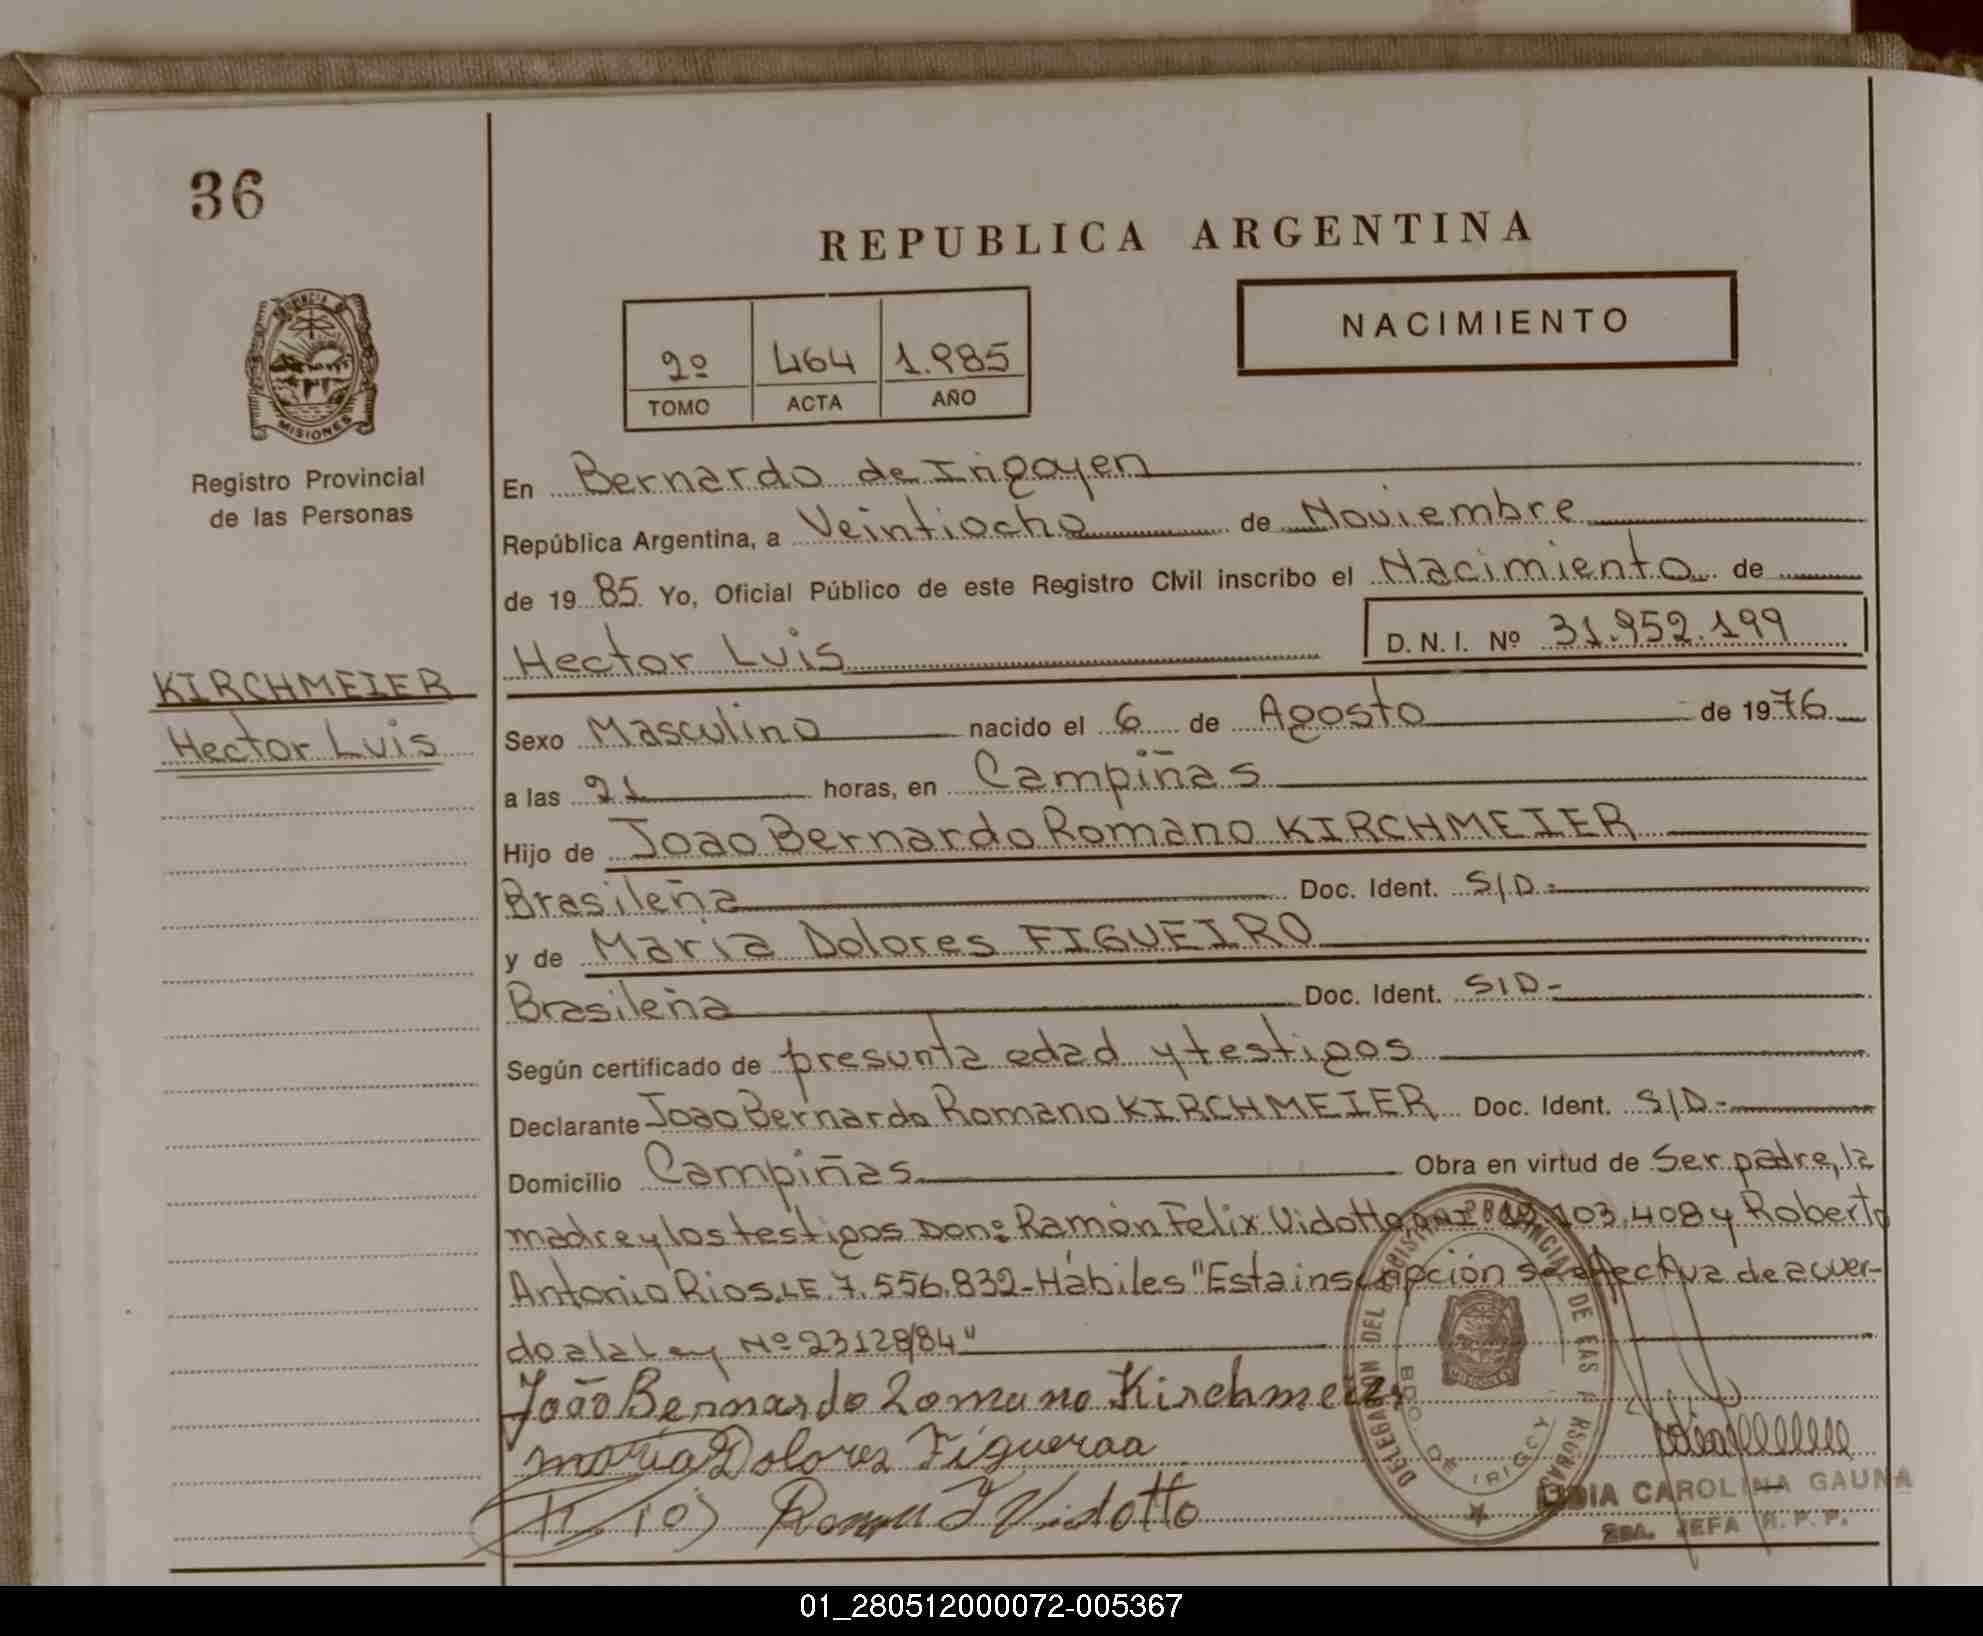 36
REPUBLICA ARGENTINA
NACIMIENTO
2º 464 1.985
TOMO ACTA AÑO
MISIONES
Registro Provincial
de las Personas
KIRCHMEIER
Hector Luis
En Bernardo de Irigoyen
República Argentina, a Veintiocho de Noviembre
de 19 85 Yo, Oficial Público de este Registro Civil inscribo el Nacimiento de
Hector Luis D. N. I. Nº 31.952.199
Sexo Masculino nacido el 6 de Agosto de 1976
a las 21 horas, en Campiñas
Hijo de Joao Bernardo Romano KIRCHMEIER
Brasileña Doc. Ident. S/D-
y de Maria Dolores FIGUEIRO
Brasileña Doc. Ident. S/D-
Según certificado de presunta edad y testigos
Declarante Joao Bernardo Romano KIRCHMEIER Doc. Ident. S/D-
Domicilio Campiñas Obra en virtud de Ser padre, la
madre y los testigos Don: Ramón Felix Vidotto DNI 103.408 y Roberto
Antonio Rios, LE 7.556.832- Hábiles "Esta inscripción se efectua de acuer-
do a la Ley Nº 23128/84"
João Bernardo Romano Kirchmeier
Maria Dolores Figueraa
Vidotto
DELEGACION DEL REGISTRO PROVINCIAL DE LAS PERSONAS
BDO. DE IRIGOY
LIDIA CAROLINA GAUNA
2da. JEFA R.P.P.
01_280512000072-005367